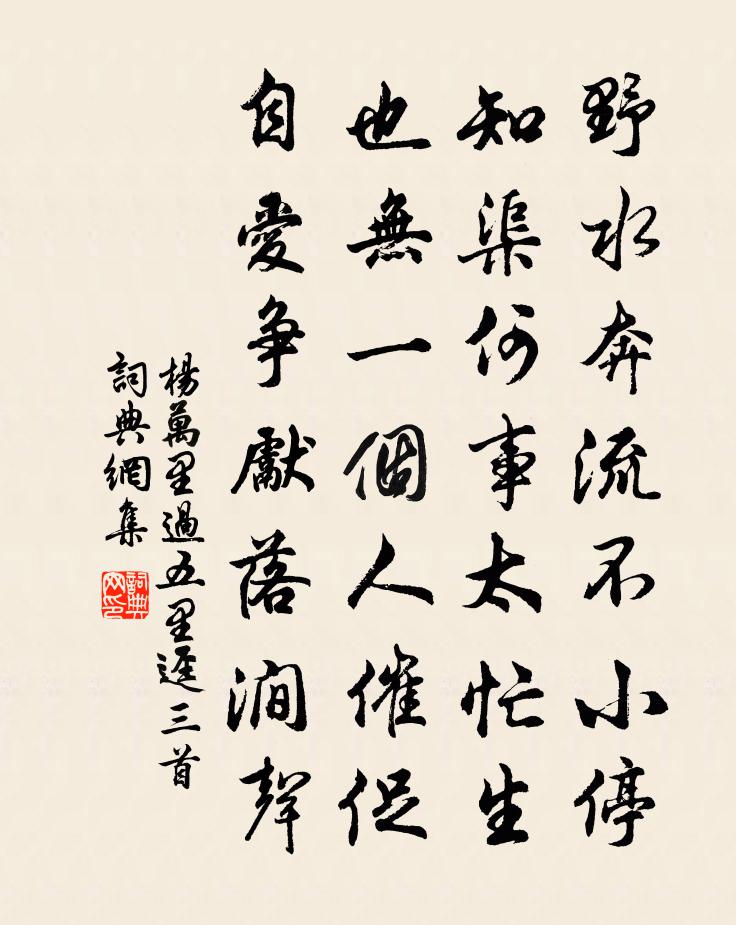 野水奔流不小停
知渠何事太忙生
也無一個人催促
自愛爭獻落澗聲
楊萬里過五里逕三首
詞典網集
詞典网印